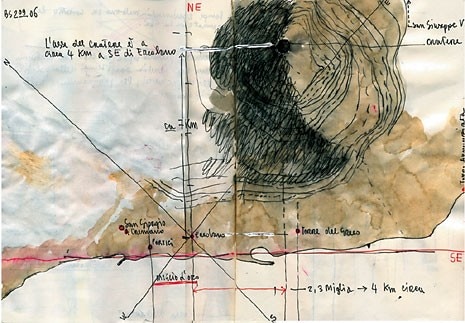 NE
San Giuseppe V
cratere
L'area del cratere è a
circa 4 km a SE di Ercolano
N
km
San Giorgio
a Cremano
Portici
Ercolano
Torre del Greco
SE
Miglio d'oro
2,3 miglia → 4 km circa
S